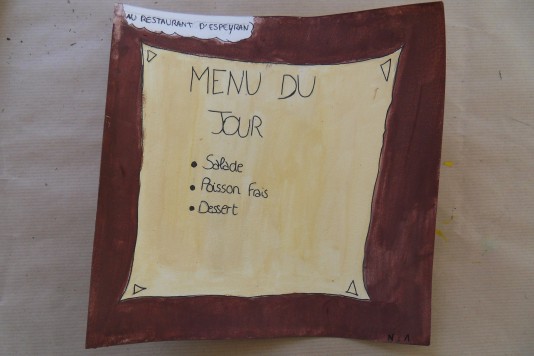 AU RESTAURANT D'ESPEYRAN
MENU DU
JOUR
• Salade
• Poisson frais
• Dessert
N.A